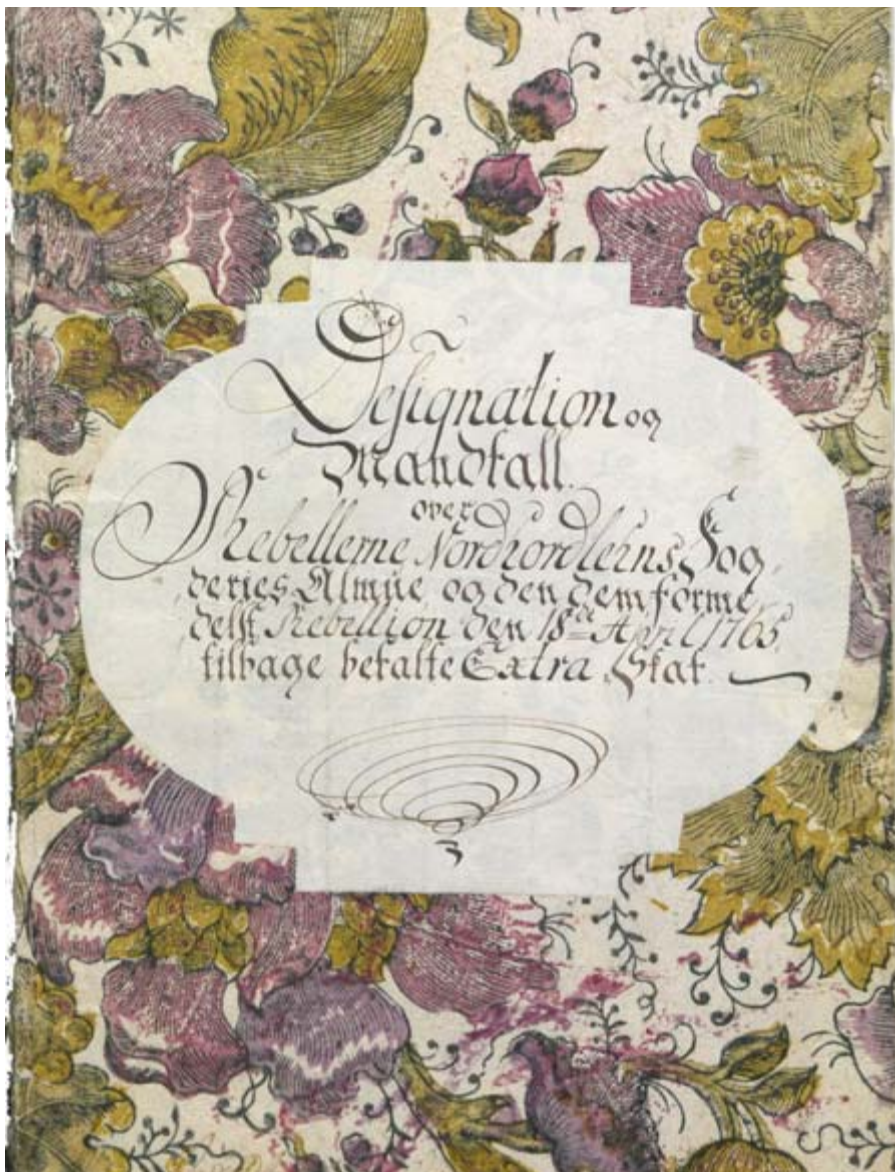 Designation og
Mandtall
over
Rebellerne, Nordhordlehns Fog,
deries Almue, og den dem formed
delst Rebellion den 18de April 1765
tilbage betalte Extra Skat.